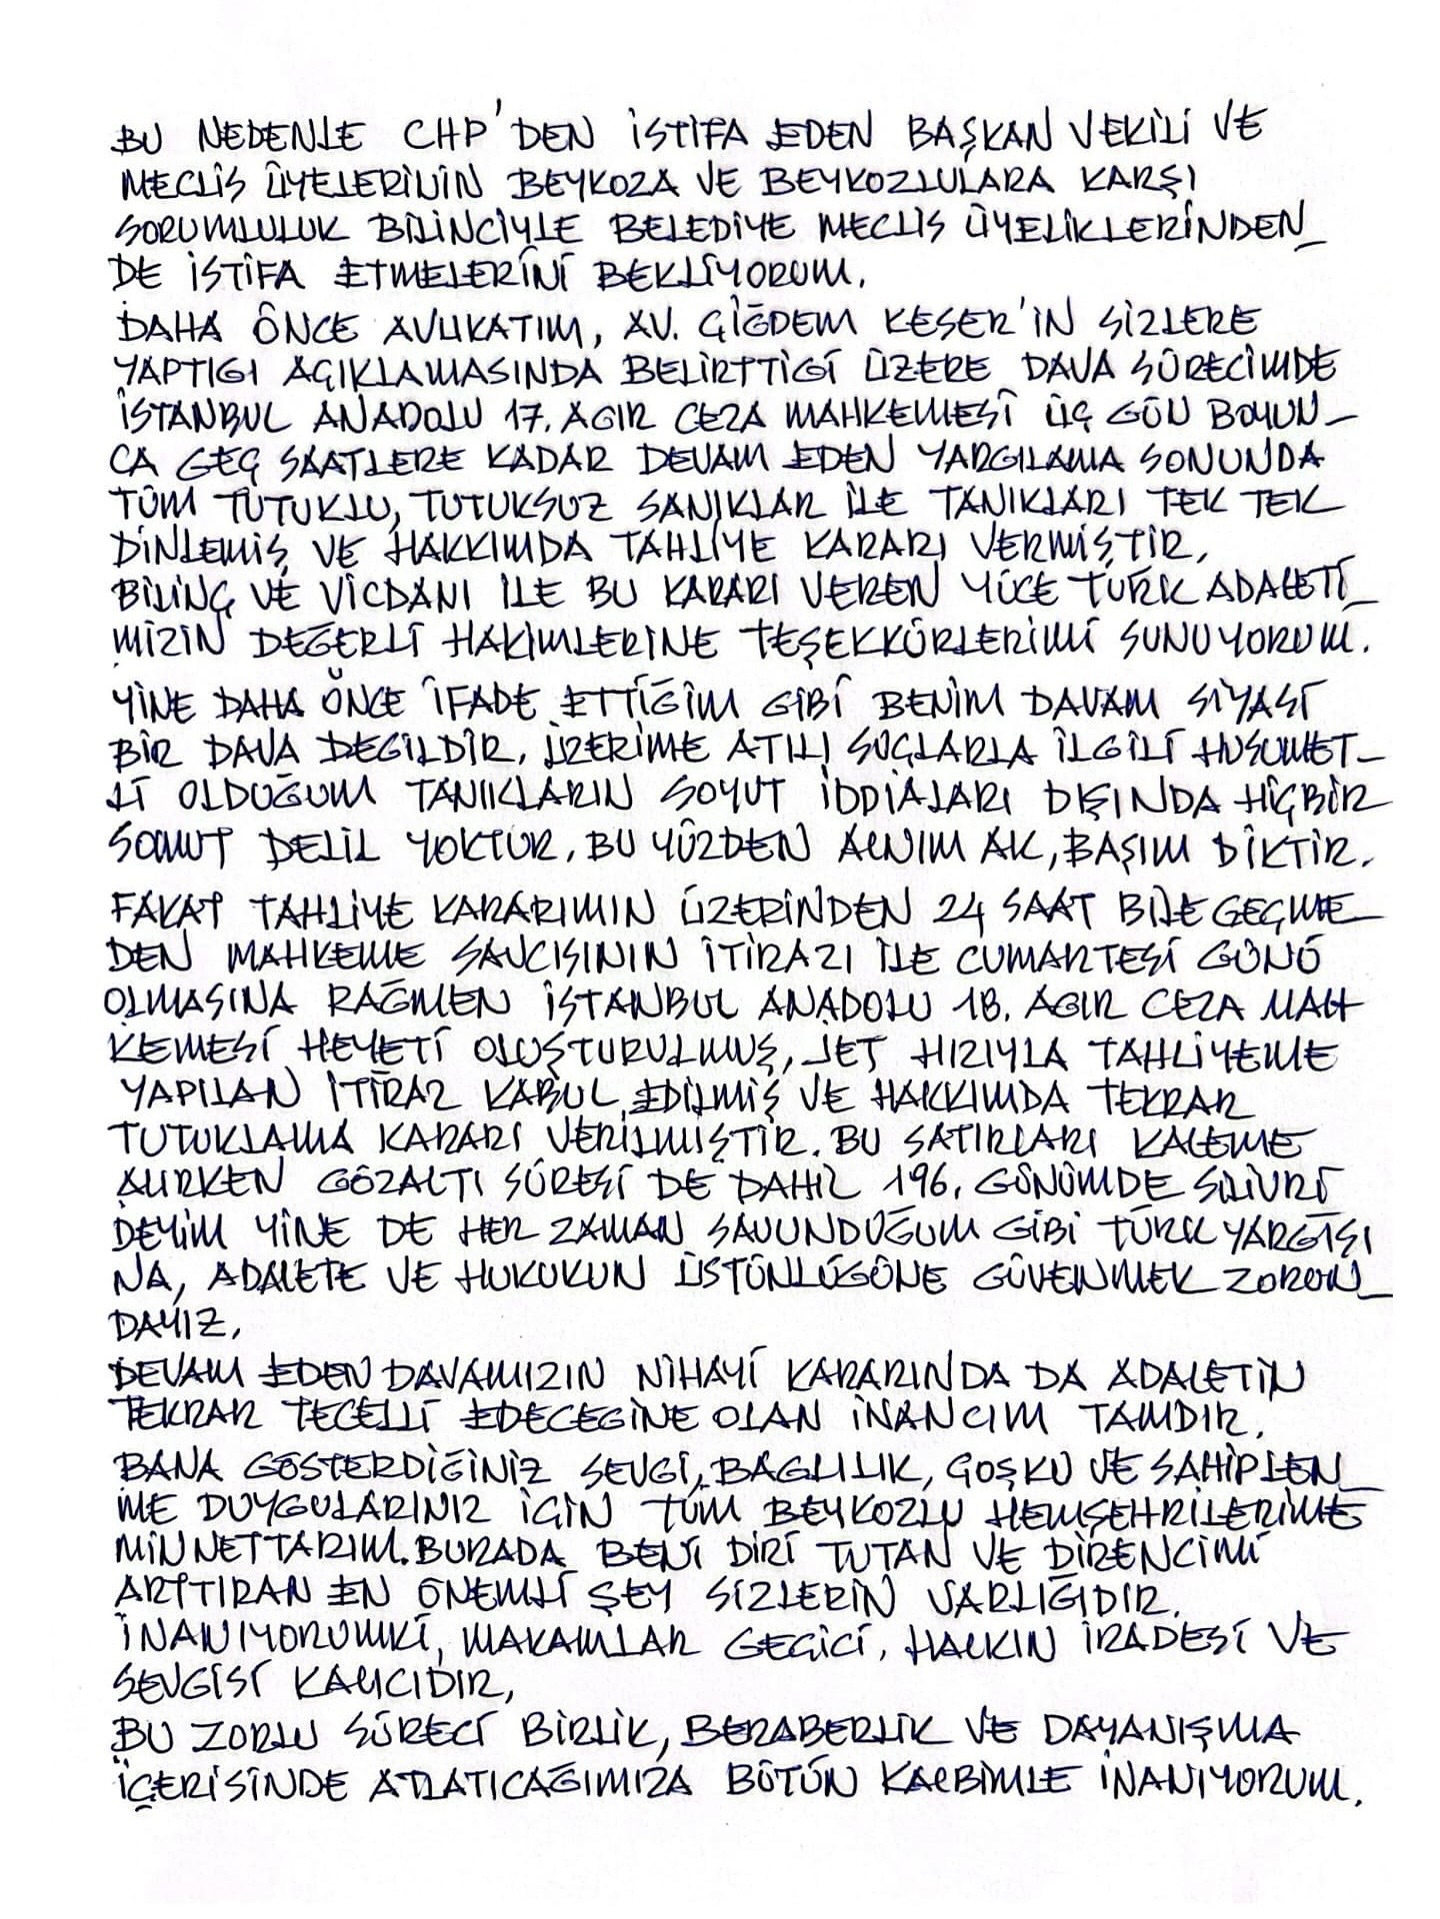 BU NEDENLE CHP'DEN İSTİFA EDEN BAŞKAN VEKİLİ VE
MECLİS ÜYELERİNİN BEYKOZA VE BEYKOZLULARA KARŞI
SORUMLULUK BİLİNCİYLE BELEDİYE MECLİS ÜYELİKLERİNDEN_
DE İSTİFA ETMELERİNİ BEKLİYORUM.
DAHA ÖNCE AVUKATIM, AV. ÇİĞDEM KESER'İN SİZLERE
YAPTIGI AÇIKLAMASINDA BELİRTTİGİ ÜZERE DAVA SÜRECİMDE
İSTANBUL ANADOLU 17. AGIR CEZA MAHKEMESİ ÜÇ GÜN BOYUN_
CA GEÇ SAATLERE KADAR DEVAM EDEN YARGILAMA SONUNDA
TÜM TUTUKLU, TUTUKSUZ SANIKLAR İLE TANIKLARI TEK TEK
DİNLEMİŞ VE HAKKIMDA TAHLİYE KARARI VERMİŞTİR.
BİLİNÇ VE VİCDANI İLE BU KARARI VEREN YÜCE TÜRK ADALETİ_
MİZİN DEĞERLİ HAKİMLERİNE TEŞEKKÜRLERİMİ SUNUYORUM.
YİNE DAHA ÖNCE İFADE ETTİĞİM GİBİ BENİM DAVAM SİYASİ
BİR DAVA DEGİLDİR. ÜZERİME ATILI SUÇLARLA İLGİLİ HUSUMET_
Lİ OLDUĞUM TANIKLARIN SOYUT İDDİALARI DIŞINDA HİÇBİR
SOMUT DELİL YOKTUR. BU YÜZDEN ALNIM AK, BAŞIM DİKTİR.
FAKAT TAHLİYE KARARIMIN ÜZERİNDEN 24 SAAT BİLE GEÇME_
DEN MAHKEME SAVCISININ İTİRAZI İLE CUMARTESİ GÜNÜ
OLMASINA RAĞMEN İSTANBUL ANADOLU 18. AGIR CEZA MAH
KEMESİ HEYETİ OLUŞTURULMUŞ, JET HIZIYLA TAHLİYEME
YAPILAN İTİRAZ KABUL EDİLMİŞ VE HAKKIMDA TEKRAR
TUTUKLAMA KARARI VERİLMİŞTİR. BU SATIRLARI KALEME
ALIRKEN GÖZALTI SÜRESİ DE DAHİL 196. GÜNÜMDE SİLİVRİ
DEYİM YİNE DE HER ZAMAN SAVUNDUĞUM GİBİ TÜRK YARGISI
NA, ADALETE VE HUKUKUN ÜSTÜNLÜGÜNE GÜVENMEK ZORUN_
DAYIZ.
DEVAM EDEN DAVAMIZIN NİHAYİ KARARINDA DA ADALETİN
TEKRAR TECELLİ EDECEGİNE OLAN İNANCIM TAMDIR.
BANA GÖSTERDİĞİNİZ SEVGİ, BAGLILIK, COŞKU VE SAHİPLEN_
ME DUYGULARINIZ İÇİN TÜM BEYKOZLU HEMŞEHRİLERİME
MİNNETTARIM. BURADA BENİ DİRİ TUTAN VE DİRENCİMİ
ARTTIRAN EN ÖNEMLİ ŞEY SİZLERİN VARLIĞIDIR.
İNANIYORUMKİ, MAKAMLAR GEÇİCİ, HALKIN İRADESİ VE
SEVGİSİ KALICIDIR.
BU ZORLU SÜRECİ BİRLİK, BERABERLİK VE DAYANIŞMA
İÇERİSİNDE ATLATICAĞIMIZA BÜTÜN KALBİMLE İNANIYORUM.